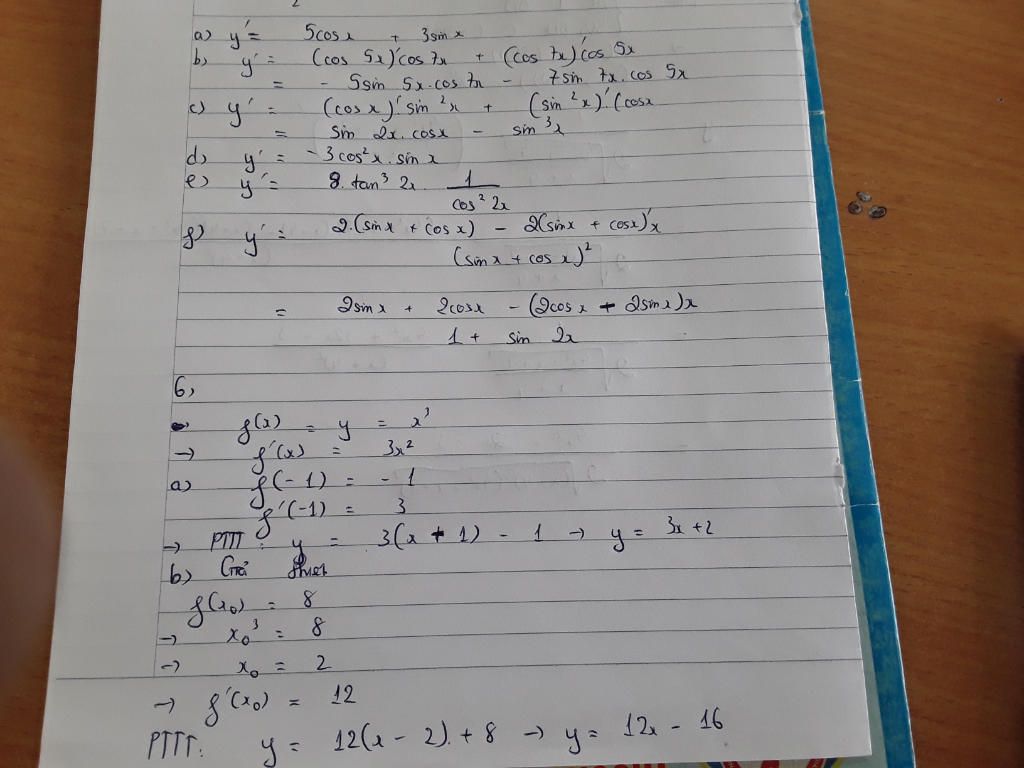 2
a) y' = 5cosx + 3sinx
b) y' = (cos 5x)'cos 7x + (cos 7x)'cos 5x
= - 5sin 5x.cos 7x - 7sin 7x.cos 5x
c) y' = (cos x)'. sin²x + (sin²x)'(cosx
= sin 2x.cosx - sin³x
d) y' = -3cos²x.sin x
e) y' = 8.tan³ 2x. 1/cos² 2x
f) y' = 2.(sinx + cos x) - 2(sinx + cosx)'x
(sin x + cos x)²
= 2sin x + 2cosx - (2cos x + 2sin x)x
1 + sin 2x
6,
f(x) = y = x³
→ f'(x) = 3x²
a) f(-1) = -1
f'(-1) = 3
→ PTTT: y = 3(x + 1) - 1 → y = 3x + 2
b) Giả
f(x₀) = 8
→ x₀³ = 8
→ x₀ = 2
→ f'(x₀) = 12
PTTT: y = 12(x - 2) + 8 → y = 12x - 16